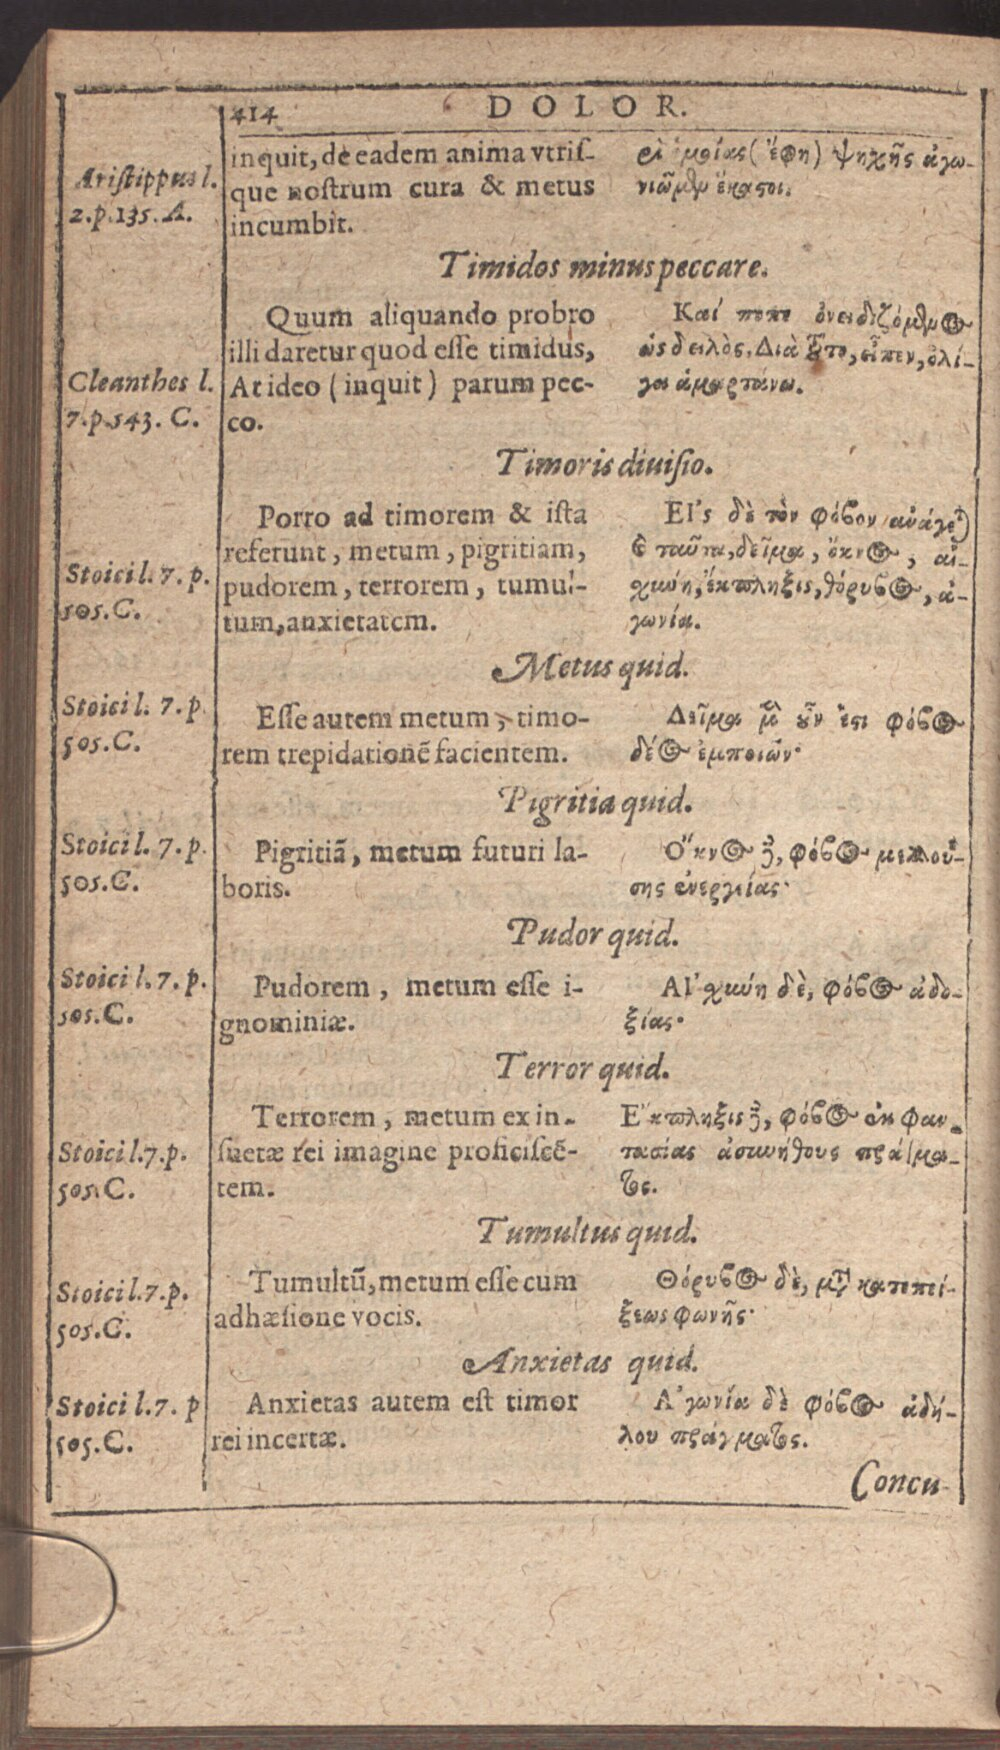 414
DOLOR.
Aristippus l.
2.p.135. A.
inquit, de eadem anima vtris-
que nostrum cura & metus
incumbit.
ὁμοίας (ἔφη) ψηχῆς ἀγω-
νιῶμϑμ ἕκαστοι.
Timidos minus peccare.
Cleanthes l.
7.p.543. C.
Quum aliquando probro
illi daretur quod esse timidus,
At ideo (inquit) parum pec-
co.
Καί ποτε ὀνειδιζόμϑμος
ὡς δειλὸς, Διὰ τοῦτο, εἶπεν, ὀλί-
γα ἁμαρτάνω.
Timoris diuisio.
Stoici l. 7. p.
505. C.
Porro ad timorem & ista
referunt, metum, pigritiam,
pudorem, terrorem, tumul-
tum, anxietatem.
Εἰς δὲ τὸν φόβον ἀνάγεται
ϗ ταῦτα, δεῖμα, ὄκνος, αἰ-
σχύνη, ἔκπληξις, θόρυβος, ἀ-
γωνία.
Metus quid.
Stoici l. 7. p.
505. C.
Esse autem metum, timo-
rem trepidationē facientem.
Δεῖμα μὲν οὖν ἐστι φόβος
δέος ἐμποιῶν·
Pigritia quid.
Stoici l. 7. p.
505. C.
Pigritiā, metum futuri la-
boris.
Ὄκνος δὲ, φόβος μελλού-
σης ἐνεργείας·
Pudor quid.
Stoici l. 7. p.
505. C.
Pudorem, metum esse i-
gnominiæ.
Αἰσχύνη δὲ, φόβος ἀδο-
ξίας·
Terror quid.
Stoici l.7.p.
505. C.
Terrorem, metum ex in-
suetæ rei imagine proficiscē-
tem.
Ἔκπληξις δὲ, φόβος ἐκ φαν-
τασίας ἀσυνήθους πράγμα-
τος.
Tumultus quid.
Stoici l.7.p.
505. C.
Tumultū, metum esse cum
adhæsione vocis.
Θόρυβος δὲ, μετὰ κατεπεί-
ξεως φωνῆς·
Anxietas quid.
Stoici l.7. p
505. C.
Anxietas autem est timor
rei incertæ.
Ἀγωνία δὲ φόβος ἀδή-
λου πράγματος.
Concu-